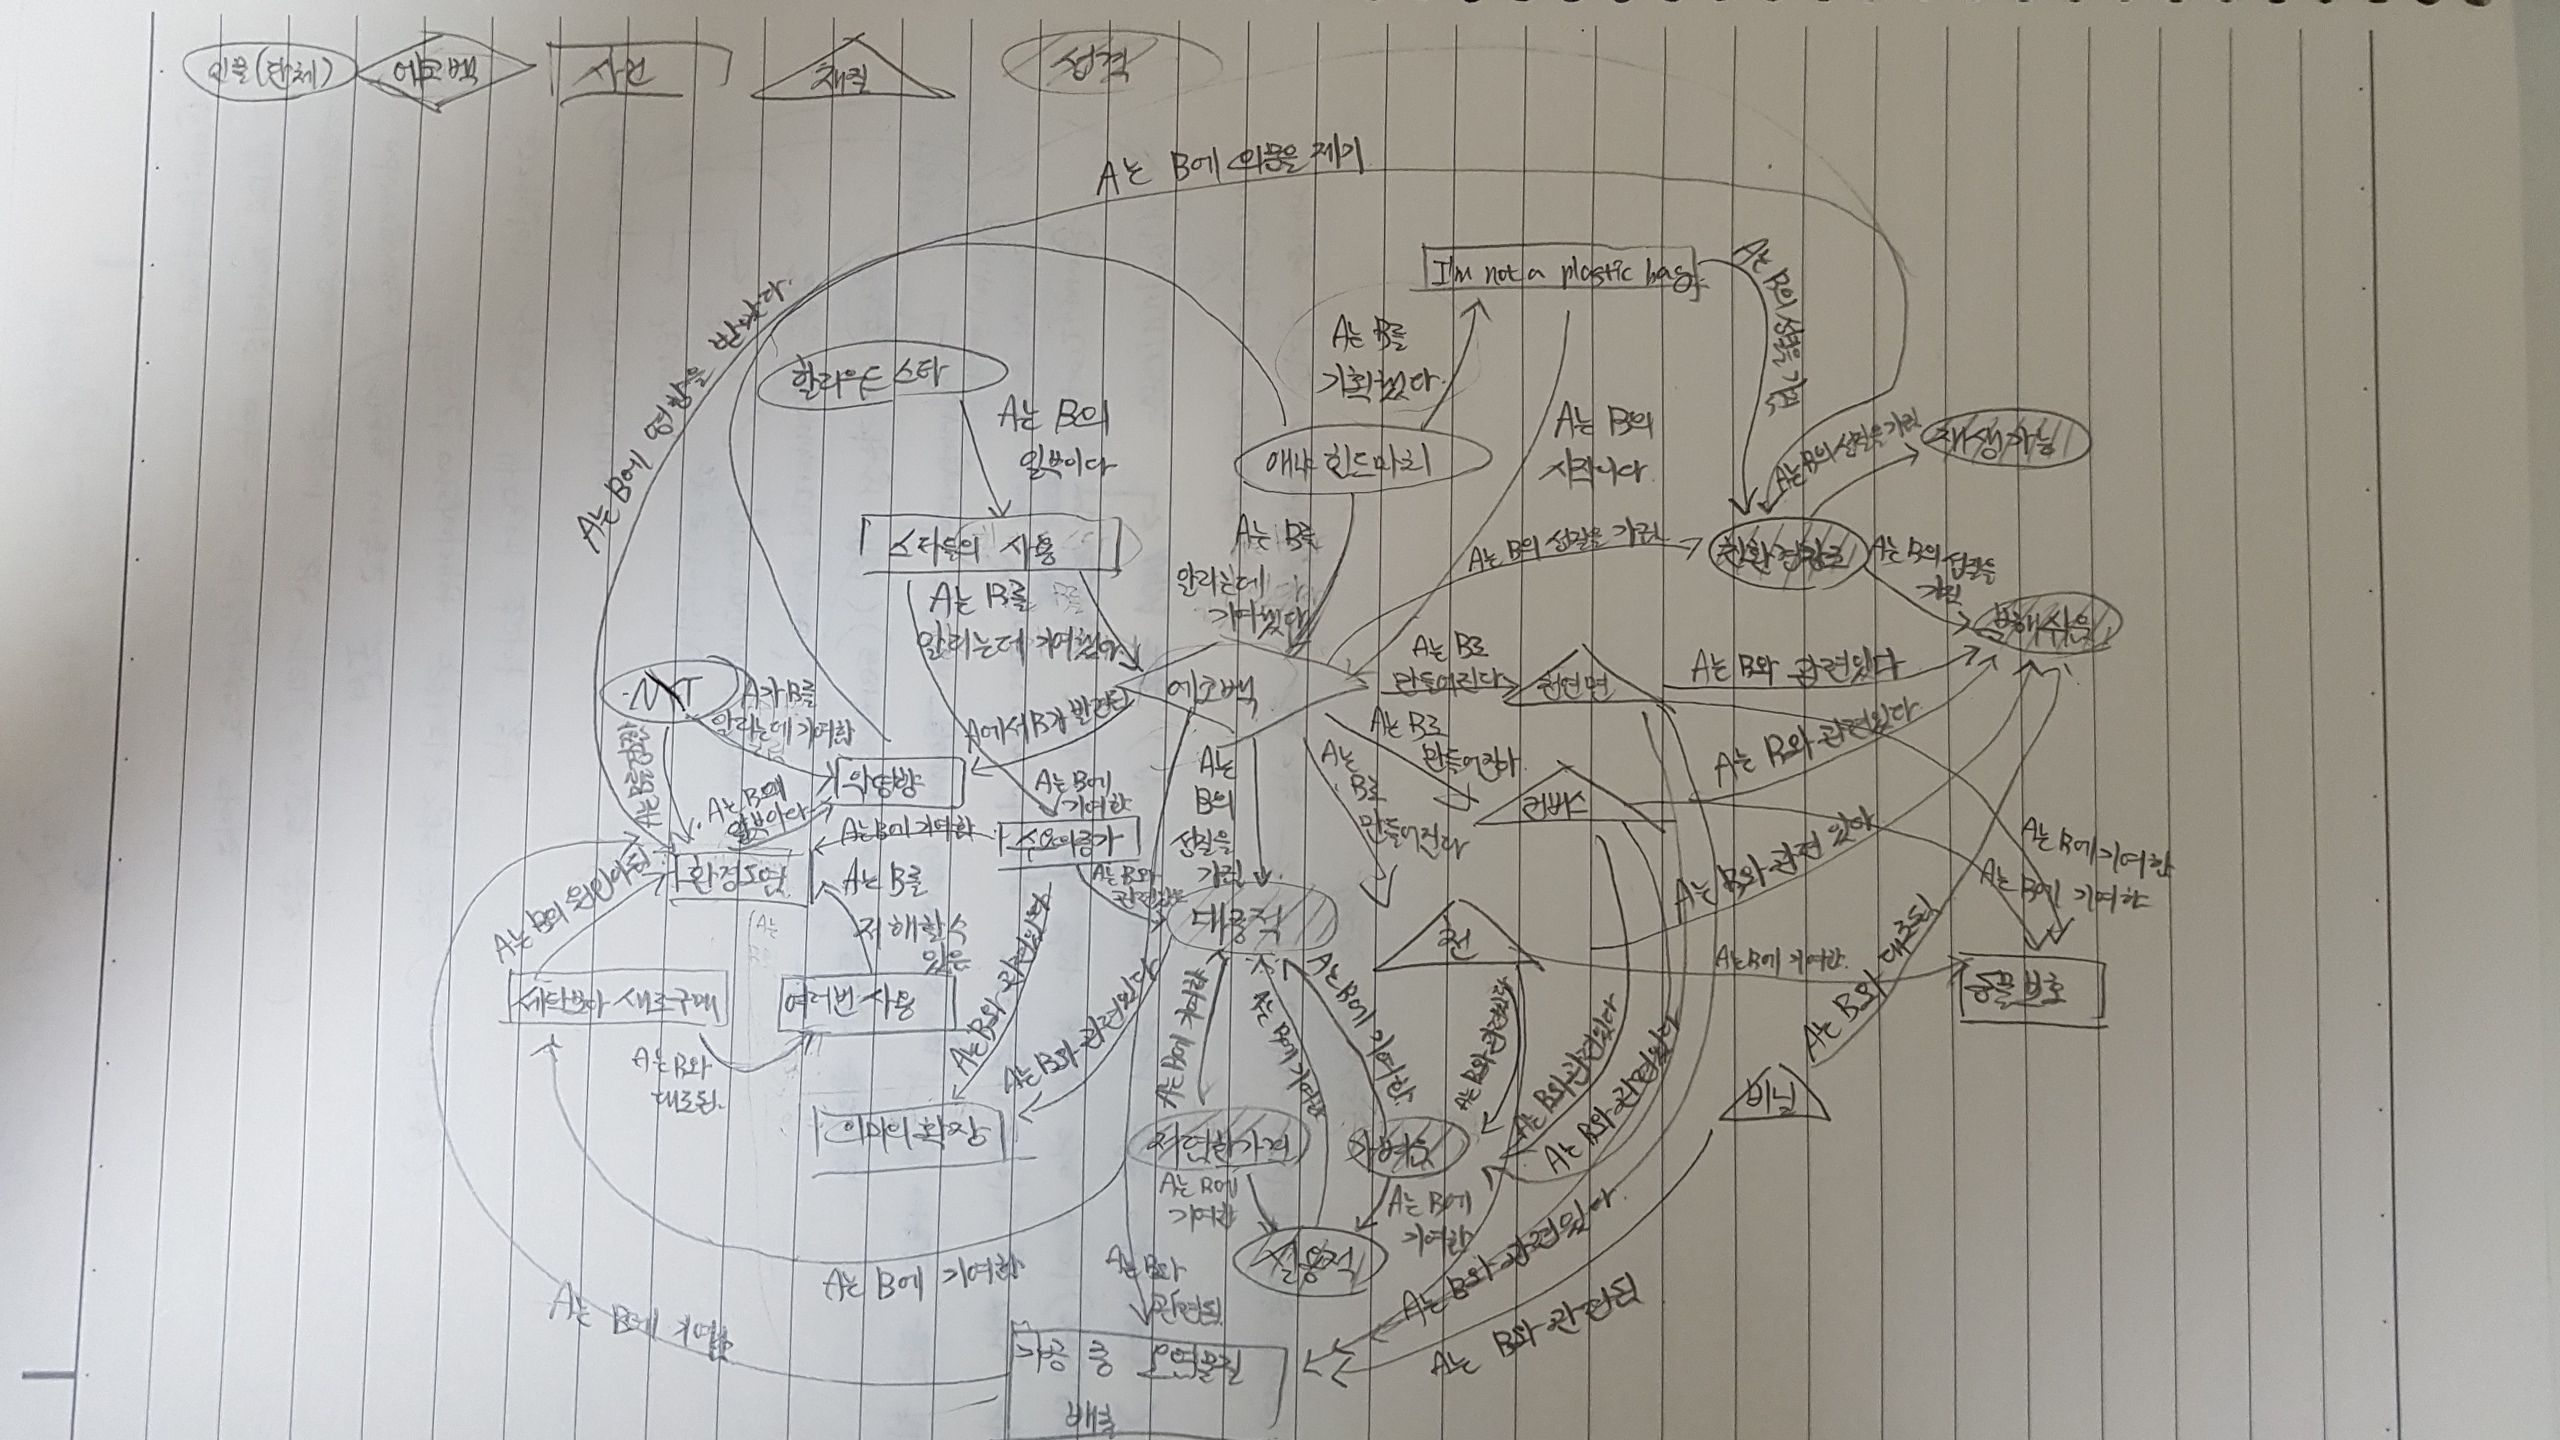 인물(단체)
에코백
사건
재질
성격
A는 B에 의문을 제기
I'm not a plastic bag
A는 B의 성질을 가짐
A는 B에 영향을 받았다.
할리우드 스타
A는 B를
기획했다.
A는 B의
일부이다
애냐 힌드마치
A는 B의
시작이다.
A는 B의 성질을 가진
재생가능
스타들의 사용
A는 B를
알리는데
기여했다
A는 B의 성질을 가진
친환경
A는 B의 성질을
가진
A는 B를
알리는데 기여했다.
분해쉬운
에코백
A는 B로
만들어진다
천연면
A는 B와 관련있다
A가 B를
알리는데 기여함
A에서 B가 발전된
A는 B로
만들어진다
A는 B와 관련있다.
악영향
A는 B에
기여한
A는
B의
성질을
가진
A는
B로
만들어진다
캔버스
A는 B의
일부이다
A는 B에 기여한
수요의증가
환경오염
A는 B와 관련 있다
A는 B에 기여한
A는 B에 기여한
A는 B의 원인이 된
A는 B를
저해할수
있음
A는 B와
대중적
천
A는 B에 기여한
세탁보다 새로구매
여러번 사용
동물보호
A는 B와
대조됨.
A는 B와 관련있다
A는 B와 관련있다
A는 B에 기여한
A는 B에 기여한
A는 B에 기여한
A는 B와 관련있다
A는 B와 관련있다
A는 B와 관련있다
A는 B와 대조됨
비닐
의미의 확장
저렴한가격
가벼운
A는 B에
기여한
A는 B에
기여한
실용적
A는 B에 기여한
A는 B와
관련됨.
A는 B와 관련있다.
A는 B와 관련됨
A는 B에 기여함
가공 중 오염물질
배출